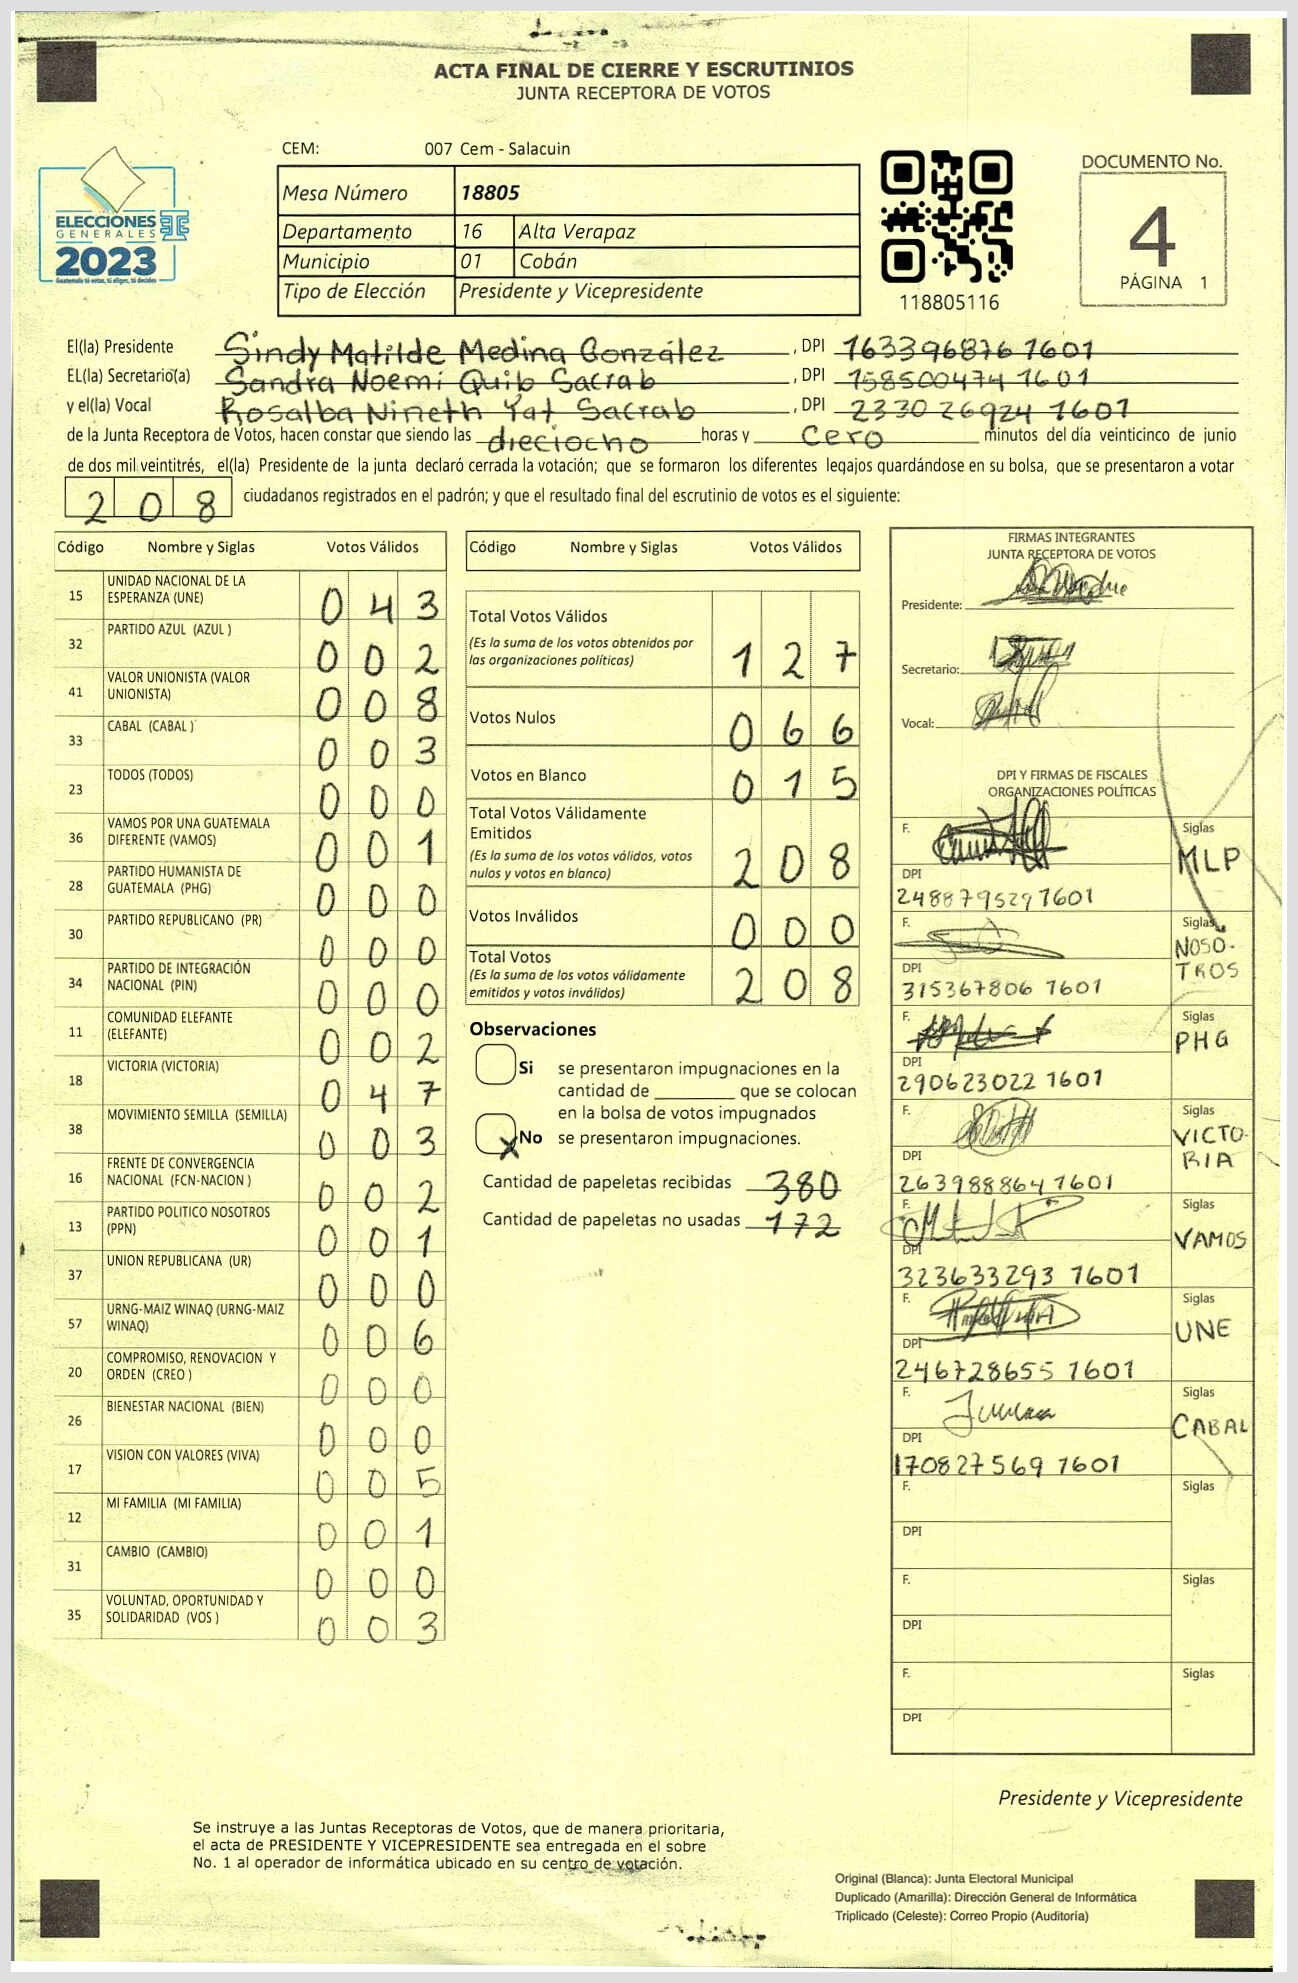 ACTA FINAL DE CIERRE Y ESCRUTINIOS
JUNTA RECEPTORA DE VOTOS
CEM: 007 Cem - Salacuin
Mesa Número 18805
Departamento 16 Alta Verapaz
Municipio 01 Cobán
Tipo de Elección Presidente y Vicepresidente
ELECCIONES
GENERALES
2023
Guatemala tú votas, tú eliges, tú decides
118805116
DOCUMENTO No.
4
PÁGINA 1
El(la) Presidente Sindy Matilde Medina González , DPI 163396876 1601
EL(la) Secretario(a) Sandra Noemí Quib Sacrab , DPI 158500474 1601
y el(la) Vocal Rosalba Nineth Yat Sacrab , DPI 2330 26924 1601
de la Junta Receptora de Votos, hacen constar que siendo las dieciocho horas y cero minutos del día veinticinco de junio
de dos mil veintitrés, el(la) Presidente de la junta declaró cerrada la votación; que se formaron los diferentes legajos guardándose en su bolsa, que se presentaron a votar
208 ciudadanos registrados en el padrón; y que el resultado final del escrutinio de votos es el siguiente:
Código Nombre y Siglas Votos Válidos
15 UNIDAD NACIONAL DE LA
ESPERANZA (UNE) 043
32 PARTIDO AZUL (AZUL ) 002
41 VALOR UNIONISTA (VALOR
UNIONISTA) 008
33 CABAL (CABAL ) 003
23 TODOS (TODOS) 000
36 VAMOS POR UNA GUATEMALA
DIFERENTE (VAMOS) 001
28 PARTIDO HUMANISTA DE
GUATEMALA (PHG) 000
30 PARTIDO REPUBLICANO (PR) 000
34 PARTIDO DE INTEGRACIÓN
NACIONAL (PIN) 000
11 COMUNIDAD ELEFANTE
(ELEFANTE) 002
18 VICTORIA (VICTORIA) 047
38 MOVIMIENTO SEMILLA (SEMILLA) 003
16 FRENTE DE CONVERGENCIA
NACIONAL (FCN-NACION ) 002
13 PARTIDO POLITICO NOSOTROS
(PPN) 001
37 UNION REPUBLICANA (UR) 000
57 URNG-MAIZ WINAQ (URNG-MAIZ
WINAQ) 006
20 COMPROMISO, RENOVACION Y
ORDEN (CREO ) 000
26 BIENESTAR NACIONAL (BIEN) 000
17 VISION CON VALORES (VIVA) 005
12 MI FAMILIA (MI FAMILIA) 001
31 CAMBIO (CAMBIO) 000
35 VOLUNTAD, OPORTUNIDAD Y
SOLIDARIDAD (VOS ) 003
Código Nombre y Siglas Votos Válidos
Total Votos Válidos
(Es la suma de los votos obtenidos por
las organizaciones políticas) 127
Votos Nulos 066
Votos en Blanco 015
Total Votos Válidamente
Emitidos
(Es la suma de los votos válidos, votos
nulos y votos en blanco) 208
Votos Inválidos 000
Total Votos
(Es la suma de los votos válidamente
emitidos y votos inválidos) 208
Observaciones
Si se presentaron impugnaciones en la
cantidad de ________ que se colocan
en la bolsa de votos impugnados
X No se presentaron impugnaciones.
Cantidad de papeletas recibidas 380
Cantidad de papeletas no usadas 172
FIRMAS INTEGRANTES
JUNTA RECEPTORA DE VOTOS
Presidente:
Secretario:
Vocal:
DPI Y FIRMAS DE FISCALES
ORGANIZACIONES POLÍTICAS
F. Siglas
MLP
DPI
248879529 1601
F. Siglas
NOSO-
TROS
DPI
315367806 1601
F. Siglas
PHG
DPI
290623022 1601
F. Siglas
VICTO-
RIA
DPI
263988864 1601
F. Siglas
VAMOS
DPI
323633293 1601
F. Siglas
UNE
DPI
246728655 1601
F. Siglas
CABAL
DPI
170827569 1601
F. Siglas
DPI
F. Siglas
DPI
F. Siglas
DPI
Presidente y Vicepresidente
Se instruye a las Juntas Receptoras de Votos, que de manera prioritaria,
el acta de PRESIDENTE Y VICEPRESIDENTE sea entregada en el sobre
No. 1 al operador de informática ubicado en su centro de votación.
Original (Blanca): Junta Electoral Municipal
Duplicado (Amarilla): Dirección General de Informática
Triplicado (Celeste): Correo Propio (Auditoría)